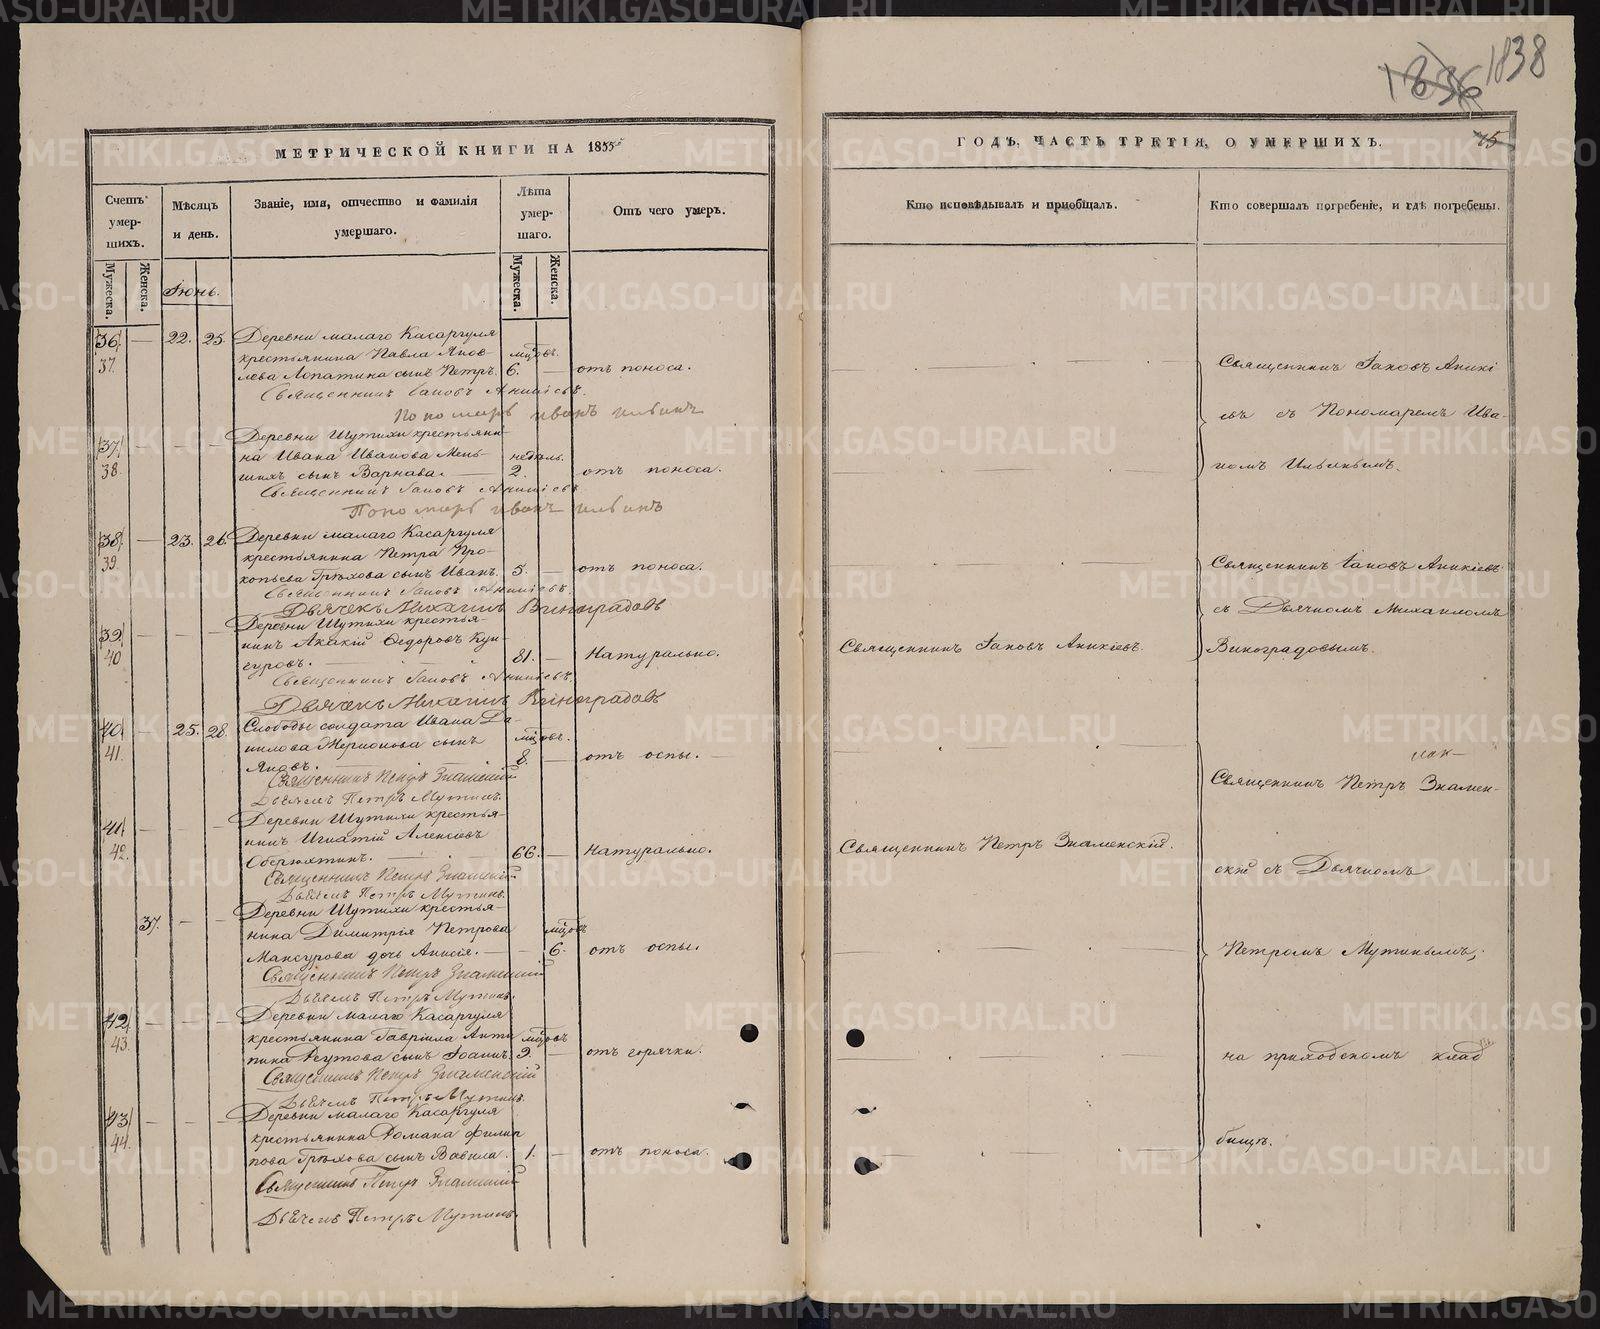 1836 1838
МЕТРИЧЕСКОЙ КНИГИ НА 1855
ГОДЪ, ЧАСТЬ ТРЕТІЯ, О УМЕРШИХЪ.
45
Счетъ умер-шихъ.
Мѣсяцъ и день.
Званіе, имя, отчество и фамилія умершаго.
Лѣта умер-шаго.
Отъ чего умеръ.
Кто исповѣдывалъ и пріобщалъ.
Кто совершалъ погребеніе, и гдѣ погребены.
Мужеска.
Женска.
Мужеска.
Женска.
Іюнь.
36. — 22. 25. Деревни малаго Касаргуля
37. крестьянина Павла Яков- мцовъ.
лева Лопатина сынъ Петръ. 6. — отъ поноса.
Священникъ Іаковъ Аникіевъ.
Пономарь Иванъ Ильинъ
37. — — — Деревни Шутихи крестьяни-
на Ивана Иванова Мень- недѣль.
38. шихъ сынъ Варнава. 2. отъ поноса.
Священникъ Іаковъ Аникіевъ
Пономарь Иванъ Ильинъ
Священникъ Іаковъ Аникі
евъ съ Пономаремъ Ива-
номъ Ильинымъ.
38. — 23. 26. Деревни малаго Касаргуля
крестьянина Петра Про-
39. копьева Грѣхова сынъ Иванъ. 5. — отъ поноса.
Священникъ Іаковъ Аникіевъ.
Дьячекъ Михаилъ Виноградовъ
39. — — — Деревни Шутихи крестья-
нинъ Акакій Ѳедоровъ Кун-
40 гуровъ. 81. — Натурально.
Священникъ Іаковъ Аникіевъ.
Священникъ Іаковъ Аникіевъ.
Дьячекъ Михаилъ Виноградовъ
Священникъ Іаковъ Аникіевъ
съ Дьячкомъ Михаиломъ
Виноградовымъ.
40. — 25. 28. Слободы солдата Ивана Да-
нилова сынъ мцовъ.
41. Яковъ. 8. — отъ оспы.
Священникъ Петръ Знаменскій
Дьячекъ Петръ Мутинъ.
41. — — — Деревни Шутихи крестья-
нинъ Игнатій Алексѣевъ
42. Обертюхтинъ. 66. — Натурально.
Священникъ Петръ Знаменскій.
Священникъ Петръ Знаменскій
Дьячекъ Петръ Мутинъ.
37. — — Деревни Шутихи крестья-
нина Димитрія Петрова мцовъ
Мансурова дочь Анисія. — 6. отъ оспы.
Священникъ Петръ Знаменскій
Дьячекъ Петръ Мутинъ.
42. — — — Деревни малаго Касаргуля
крестьянина Гавріила Анти мцовъ
43. пина Реутова сынъ Іоаннъ. 9. — отъ горячки.
Священникъ Петръ Знаменскій
Дьячекъ Петръ Мутинъ.
43. — — — Деревни малаго Касаргуля
крестьянина Романа Филип
44. пова Грѣхова сынъ Вавила. 1. — отъ поноса.
Священникъ Петръ Знаменскій
Дьячекъ Петръ Мутинъ.
Священникъ Петръ Знамен-
скій съ Дьячкомъ
Петромъ Мутинымъ;
на приходскомъ клад
бищѣ.
METRIKI.GASO-URAL.RU